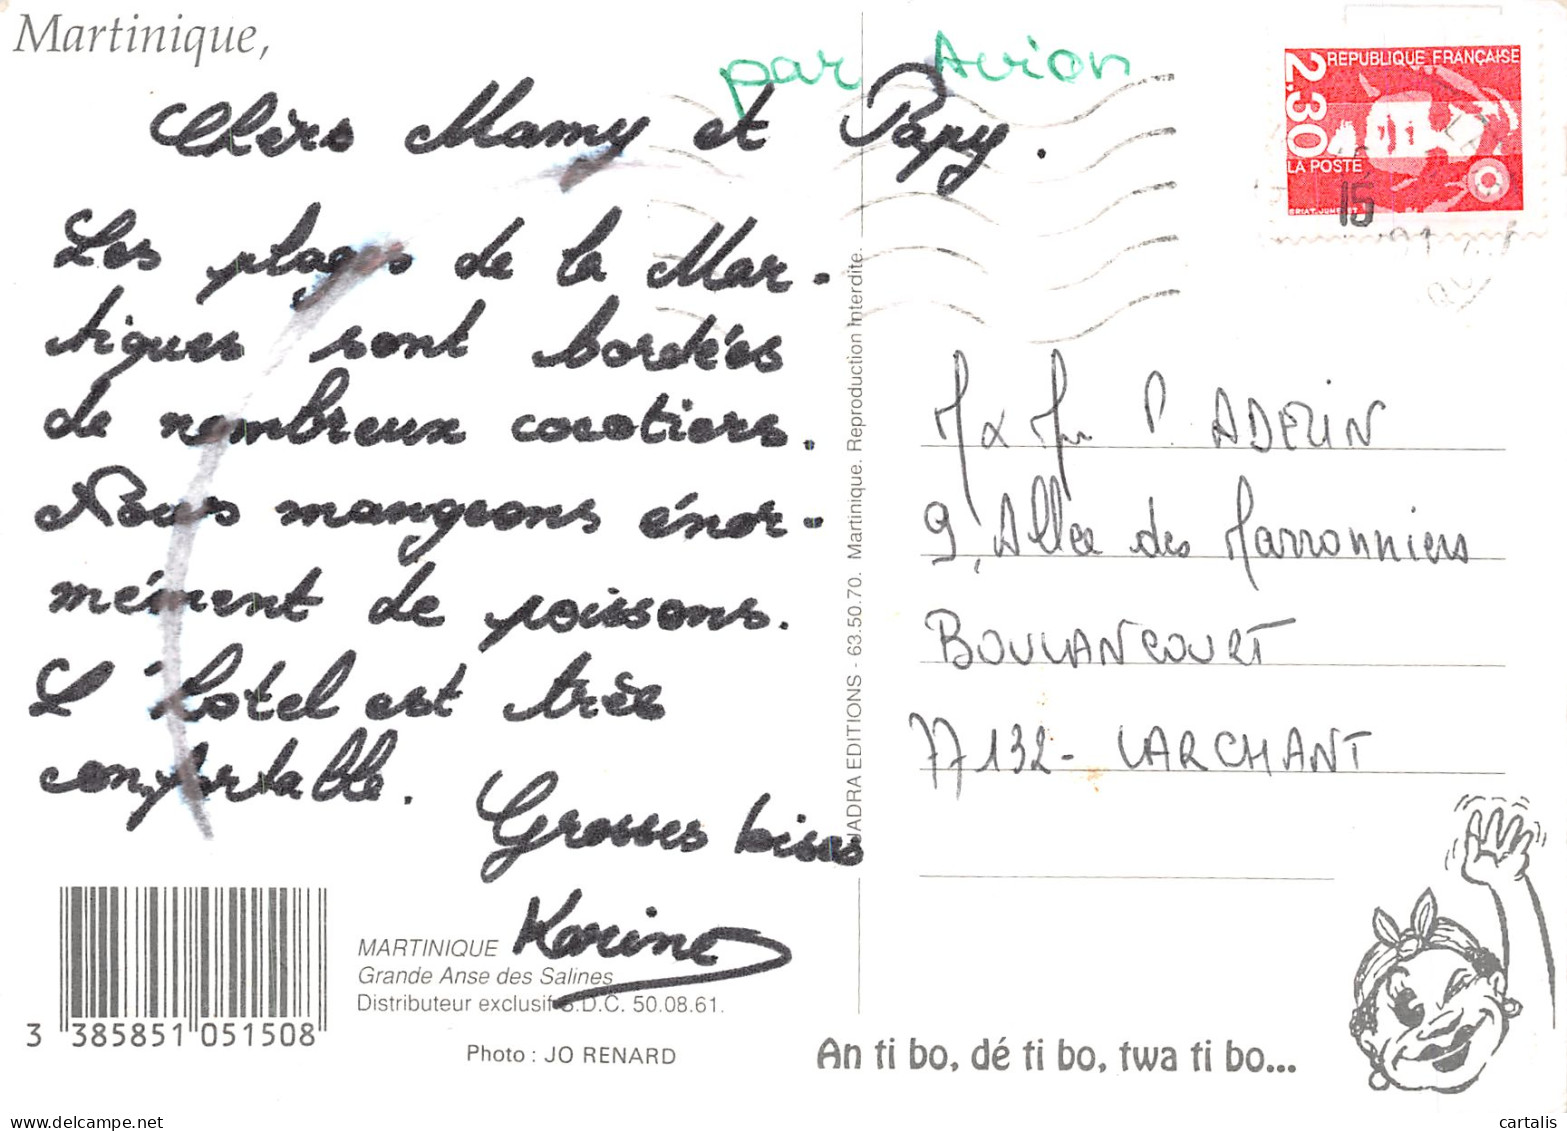 Martinique,
par Avion
Chèrs Mamy et Papy.
Les plages de la Mar-
tiques sont bordées
de nombreux cocotiers.
Nous mangeons énor-
mément de poissons.
L'hôtel est très
confortable.
Grosses bises
Karine
REPUBLIQUE FRANÇAISE
2,30
LA POSTE
15
M & Mu P. ADELIN
9, Allée des Marronniers
BOULANCOURT
77132 - LARCHANT
UADRA EDITIONS - 63.50.70. Martinique. Reproduction interdite.
3 385851 051508
MARTINIQUE
Grande Anse des Salines
Distributeur exclusif S.D.C. 50.08.61.
Photo : JO RENARD
An ti bo, dé ti bo, twa ti bo...
cartalis